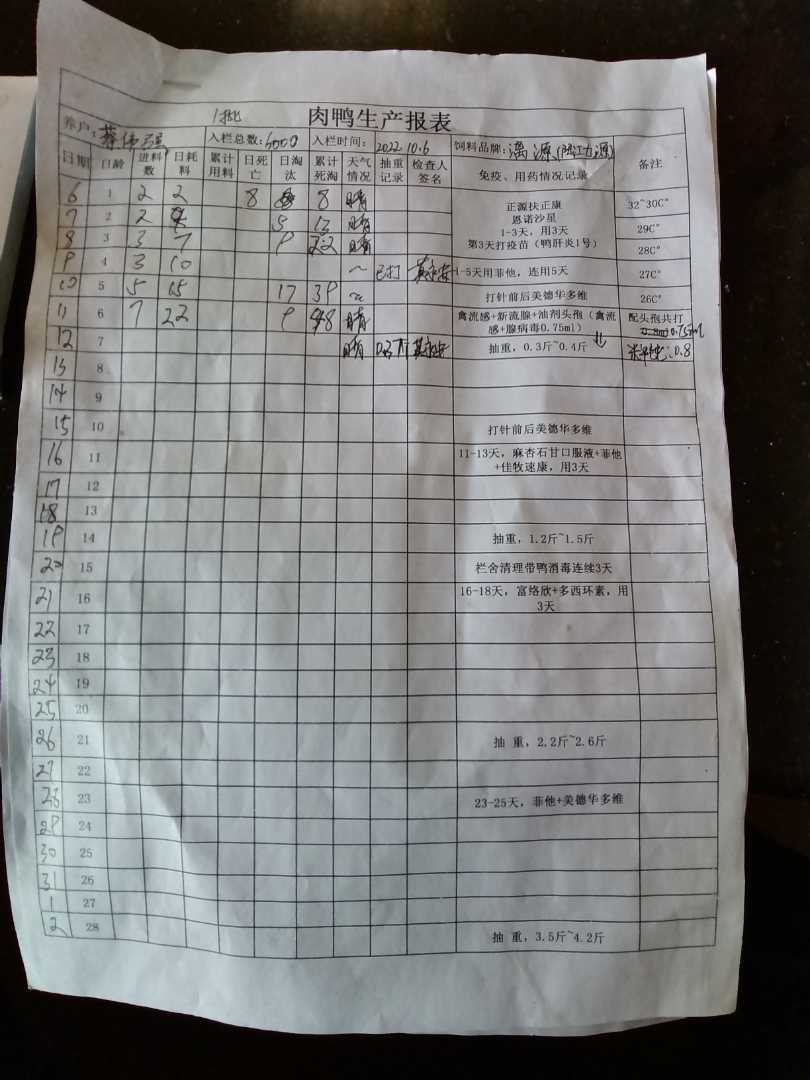 1批 肉鸭生产报表
养户: 入栏总数: 5000 入栏时间: 2022.10.6 饲料品牌: 漓源
日期 日龄 进料数 日耗料 累计用料 日死亡 日淘汰 累计死淘 天气情况 抽重记录 检查人签名 免疫、用药情况记录 备注
6 1 2 2 8 8 晴 正源扶正康 32~30C°
7 2 2 5 13 晴 恩诺沙星 29C°
8 3 3 7 9 22 晴 1-3天,用3天 28C°
第3天打疫苗(鸭肝炎1号)
9 4 3 10 ~ 已打 1-5天用菲他,连用5天 27C°
10 5 5 15 17 39 ~ 打针前后美德华多维 26C°
11 6 7 22 9 48 晴 禽流感+新流腺+油剂头孢(禽流感+腺病毒0.75ml) 配头孢共打 0.75ml
12 7 晴 0.3斤 抽重,0.3斤~0.4斤 0.8
13 8
14 9
15 10 打针前后美德华多维
16 11 11-13天,麻杏石甘口服液+菲他+佳牧速康,用3天
17 12
18 13
19 14 抽重,1.2斤~1.5斤
20 15 栏舍清理带鸭消毒连续3天
21 16 16-18天,富络欣+多西环素,用3天
22 17
23 18
24 19
25 20
26 21 抽 重,2.2斤~2.6斤
27 22
28 23 23-25天,菲他+美德华多维
29 24
30 25
31 26
1 27
2 28 抽 重,3.5斤~4.2斤